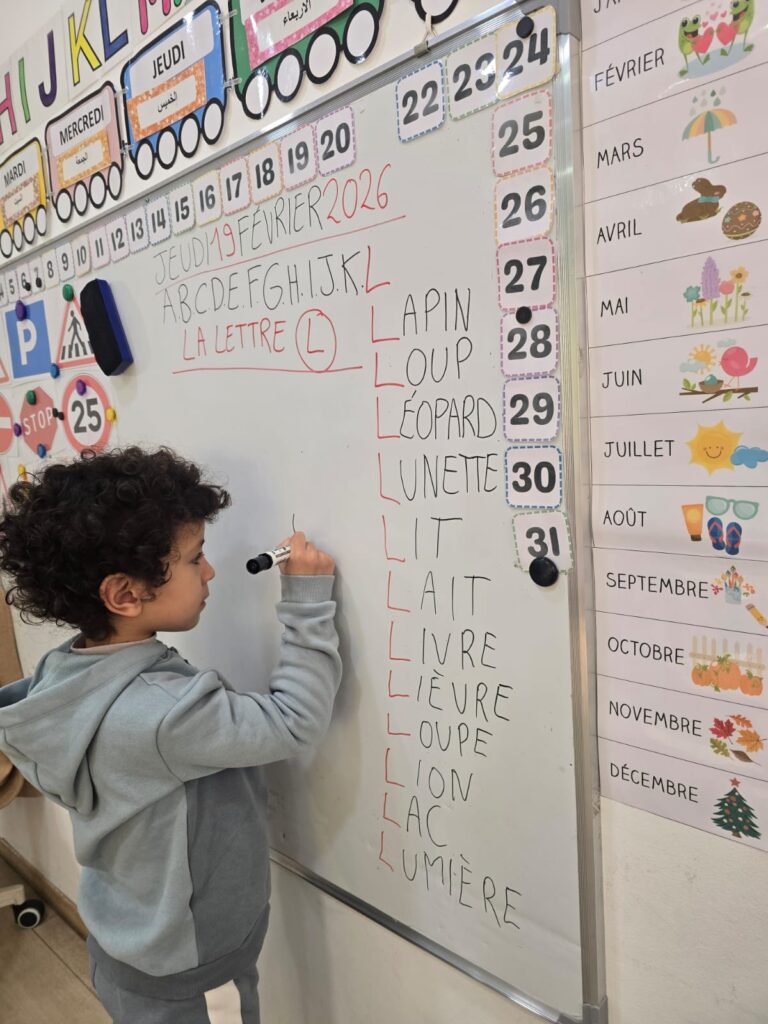 H I J K L M
MARDI
MERCREDI
الجمعة
JEUDI
الخميس
الاربعاء
5 6 7 8 9 10 11 12 13 14 15 16 17 18 19 20
22 23 24
25
26
27
28
29
30
31
P
STOP
25
JEUDI 19 FÉVRIER 2026
A.B.C.D.E.F.G.H.I.J.K.L
LA LETTRE L
LAPIN
LOUP
LÉOPARD
LUNETTE
LIT
LAIT
LIVRE
LIÈVRE
LOUPE
LION
LAC
LUMIÈRE
L
FÉVRIER
MARS
AVRIL
MAI
JUIN
JUILLET
AOÛT
SEPTEMBRE
OCTOBRE
NOVEMBRE
DÉCEMBRE